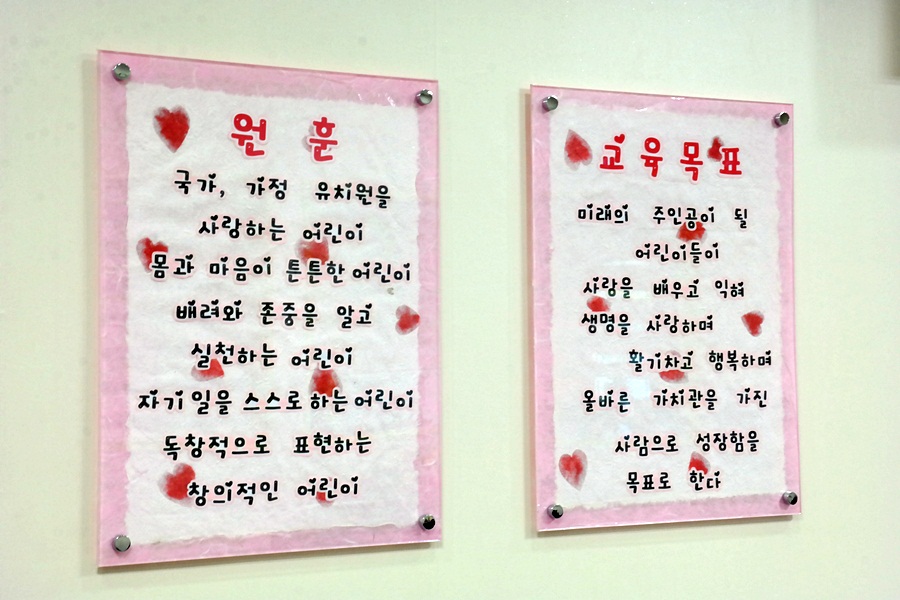 원 훈
국가, 가정 유치원을
사랑하는 어린이
몸과 마음이 튼튼한 어린이
배려와 존중을 알고
실천하는 어린이
자기 일을 스스로 하는 어린이
독창적으로 표현하는
창의적인 어린이
교육목표
미래의 주인공이 될
어린이들이
사랑을 배우고 익혀
생명을 사랑하며
활기차고 행복하며
올바른 가치관을 가진
사람으로 성장함을
목표로 한다